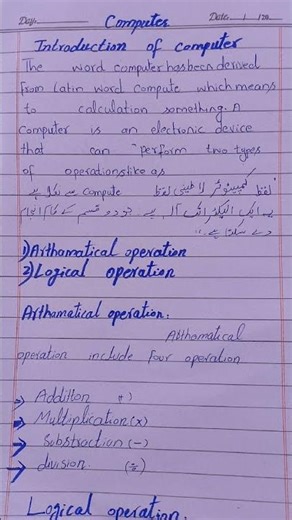 Day: Computer Date: / /20
Introduction of computer
The word computer hasbeen derived
from Latin word compute which means
to calculation something. A
Computer is an electronic device
that can perform two types
of operations like as
لفظ کمپیوٹر لاطینی لفظ compute سے نکلا ہے
یہ ایک الیکٹرانک آلہ ہے جو دو قسم کے کام انجام
دے سکتا ہے۔
1) Arthamatical operation
2) Logical operation
Arthamatical operation:
Arthomatical
operation include Four operation
Addition (+)
Multiplication (x)
Substraction (-)
division (÷)
Logical operation.